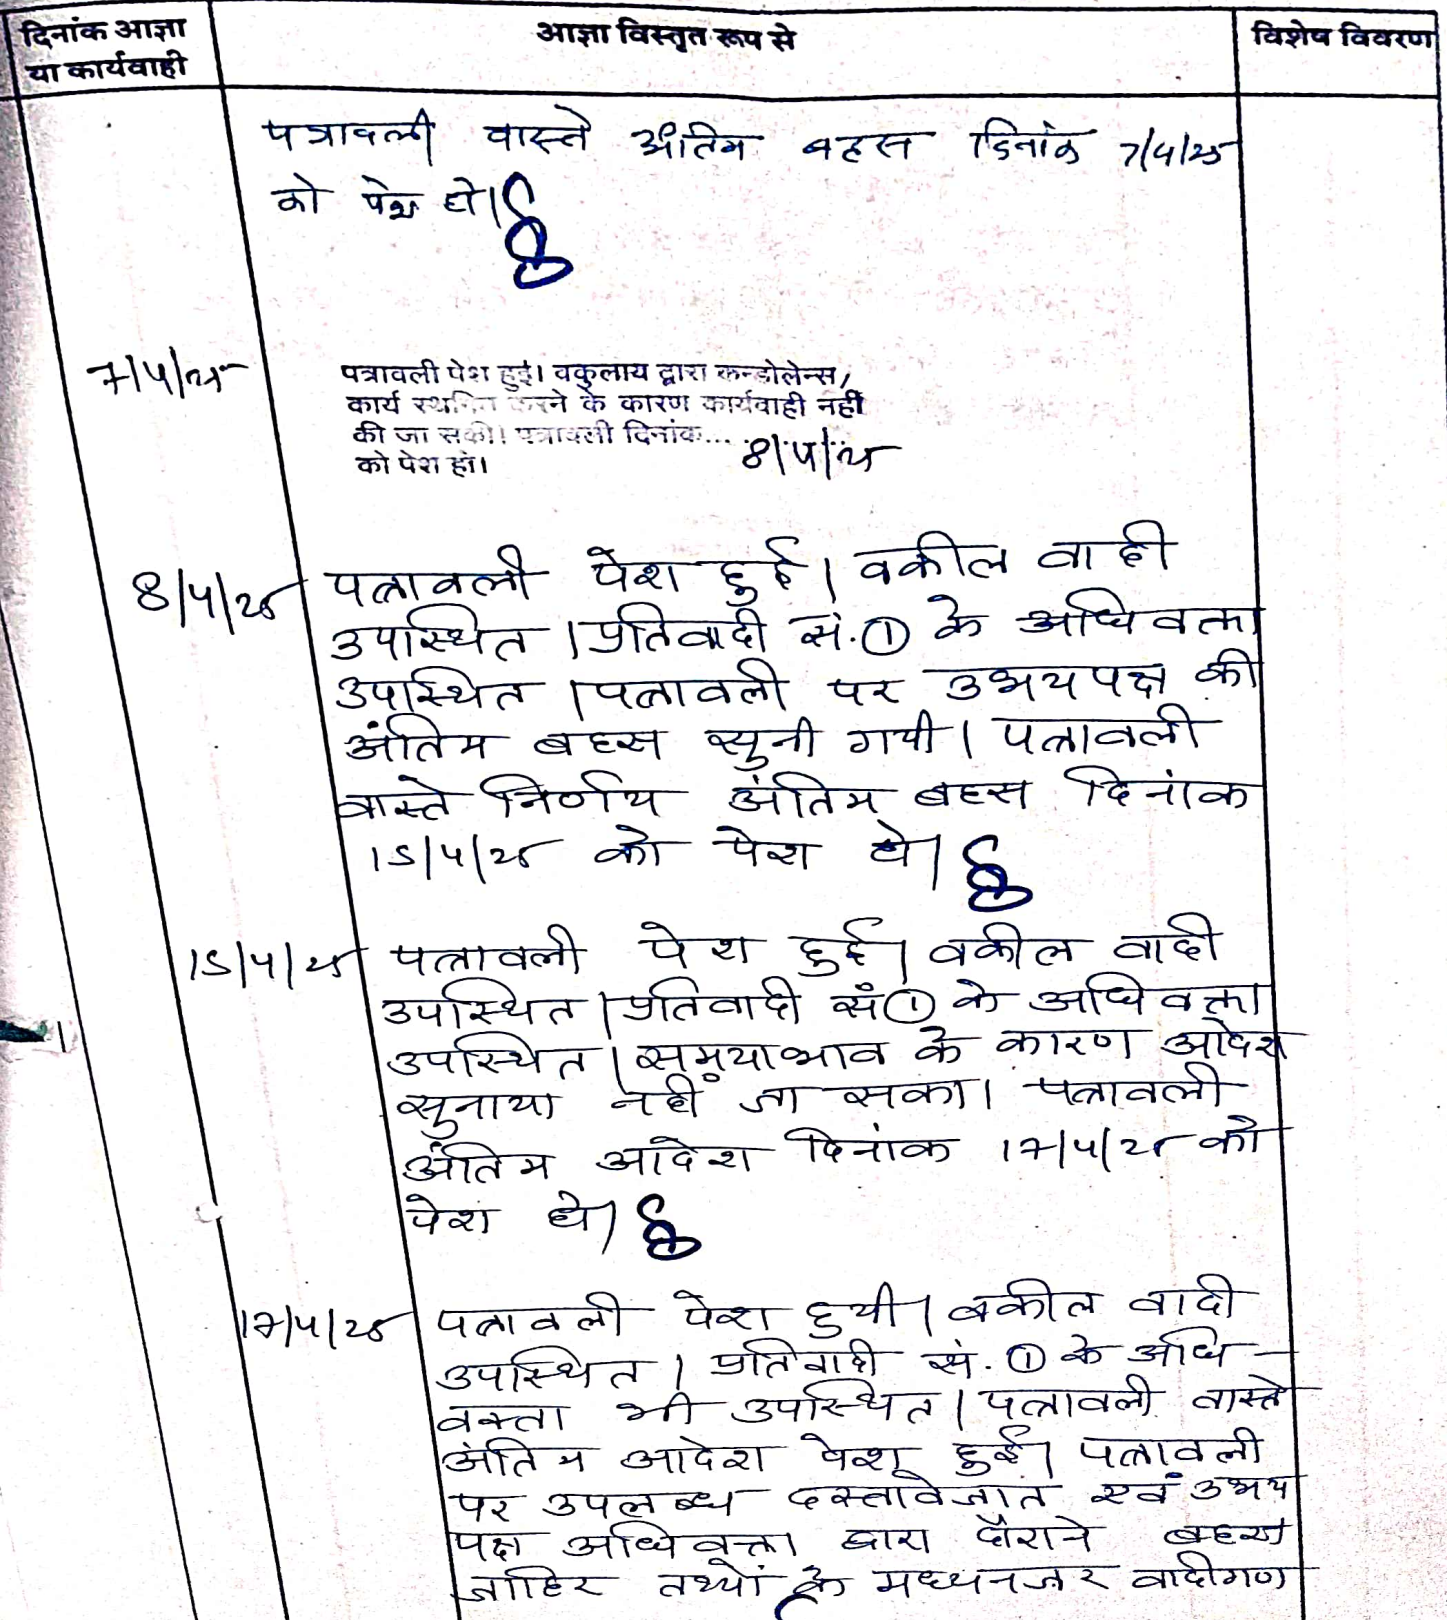 दिनांक आज्ञा
या कार्यवाही
आज्ञा विस्तृत रूप से
विशेष विवरण
पत्रावली वास्ते अंतिम बहस दिनांक 7/4/25
को पेश हो।
7/4/25
पत्रावली पेश हुई। वकुलाय द्वारा कन्डोलेन्स/
कार्य स्थगित करने के कारण कार्यवाही नहीं
की जा सकी। पत्रावली दिनांक... 8/4/25
को पेश हों।
8/4/25 पत्रावली पेश हुई। वकील वादी
उपस्थित। प्रतिवादी सं. ① के अधिवक्ता
उपस्थित। पत्रावली पर उभयपक्ष की
अंतिम बहस सुनी गयी। पत्रावली
वास्ते निर्णय अंतिम बहस दिनांक
15/4/25 को पेश हो।
15/4/25 पत्रावली पेश हुई। वकील वादी
उपस्थित। प्रतिवादी सं ① के अधिवक्ता
उपस्थित। समयाभाव के कारण आदेश
सुनाया नहीं जा सका। पत्रावली
अंतिम आदेश दिनांक 17/4/25 को
पेश हो।
17/4/25 पत्रावली पेश हुयी। वकील वादी
उपस्थित। प्रतिवादी सं. ① के अधि-
वक्ता भी उपस्थित। पत्रावली वास्ते
अंतिम आदेश पेश हुई। पत्रावली
पर उपलब्ध दस्तावेजात एवं उभय
पक्ष अधिवक्ता द्वारा दौराने बहस
जाहिर तथ्यों के मध्यनजर वादीगण